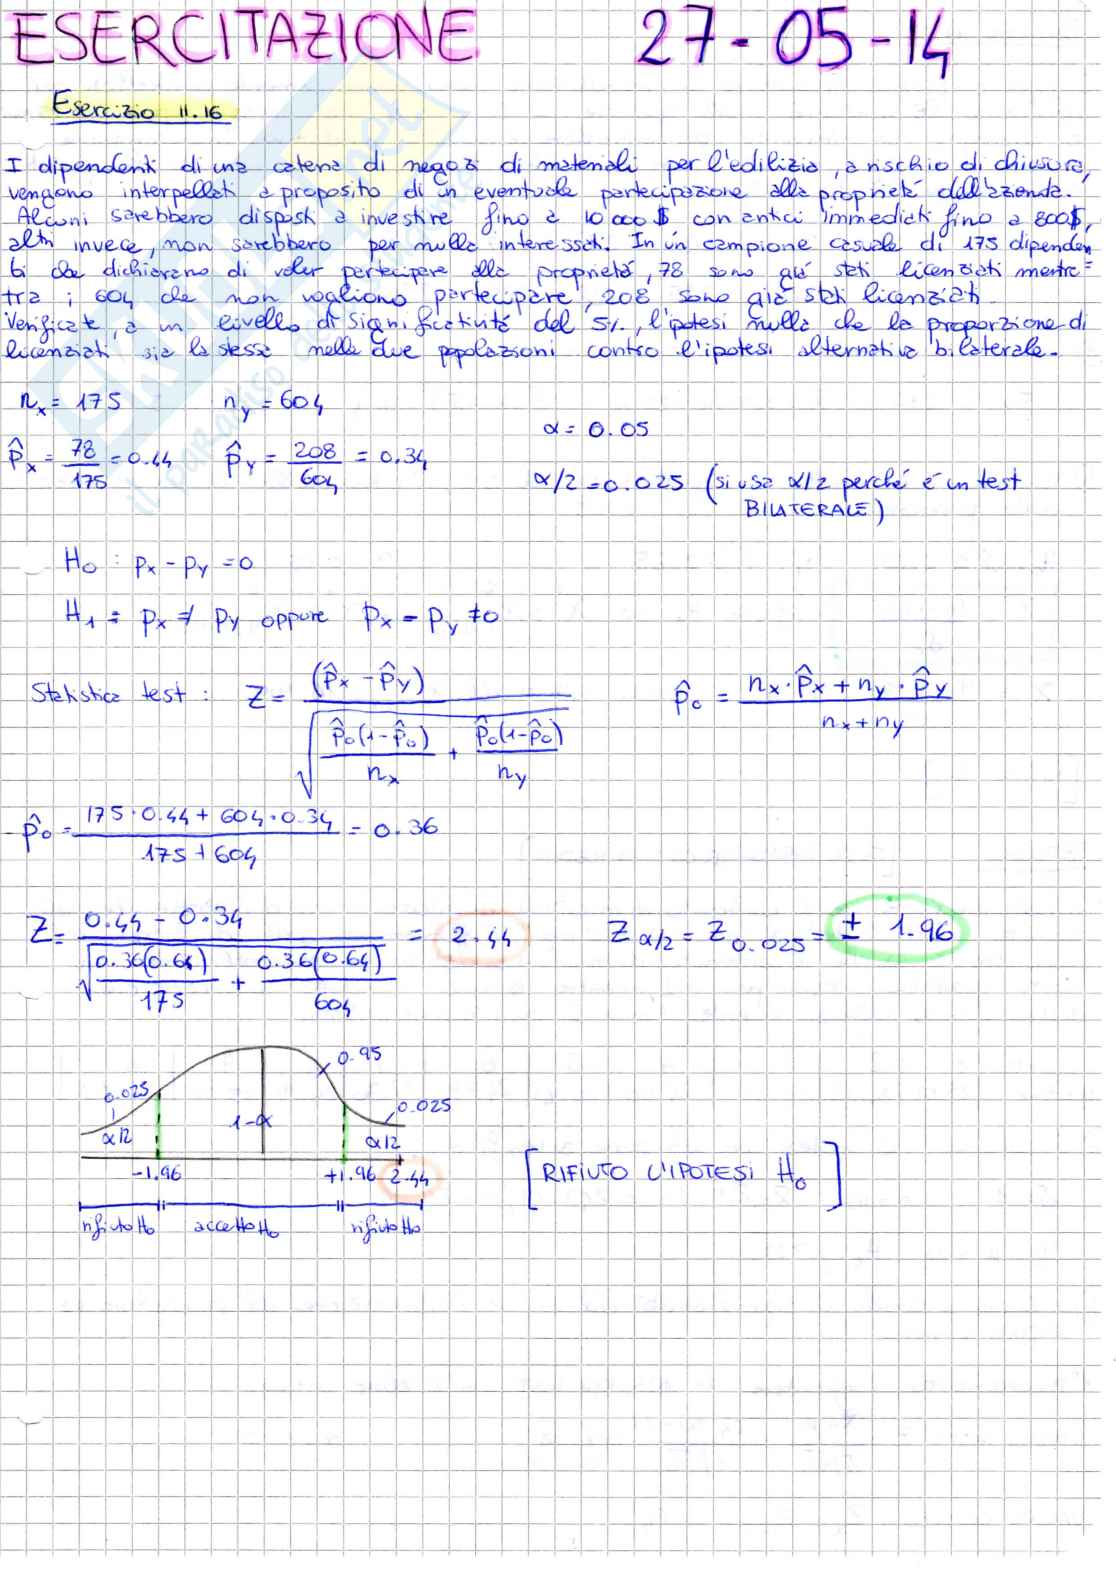 ESERCITAZIONE 27-05-14
Esercizio 11.16
I dipendenti di una catena di negozi di materiali per l'edilizia, a rischio di chiusura,
vengono interpellati a proposito di un eventuale partecipazione alla proprietà dell'azienda.
Alcuni sarebbero disposti a investire fino a 10000 $ con anticipi immediati fino a 800$,
altri invece, non sarebbero per nulla interessati. In un campione casuale di 175 dipenden
ti che dichiarano di voler partecipare alla proprietà, 78 sono già stati licenziati mentre
tra i 604 che non vogliono partecipare, 208 sono già stati licenziati.
Verificate, a un livello di significatività del 5%, l'ipotesi nulla che la proporzione di
licenziati sia la stessa nelle due popolazioni contro l'ipotesi alternativa bilaterale.
nx = 175 ny = 604
α = 0.05
p̂x = 78/175 = 0.44 p̂y = 208/604 = 0.34
α/2 = 0.025 (si usa α/2 perché é un test
BILATERALE)
H0 : px - py = 0
H1 = px ≠ py oppure px - py ≠ 0
Statistica test : Z = (p̂x - p̂y) / √(p̂0(1-p̂0)/nx + p̂0(1-p̂0)/ny) p̂0 = (nx·p̂x + ny·p̂y) / (nx+ny)
p̂0 = (175·0.44 + 604·0.34) / (175+604) = 0.36
Z = (0.44 - 0.34) / √(0.36(0.64)/175 + 0.36(0.64)/604) = 2.44 Z α/2 = Z 0.025 = ± 1.96
0.95
0.025
0.025
1-α
α/2
α/2
-1.96 +1.96 2.44
[RIFIUTO L'IPOTESI H0]
rifiuto H0 accetto H0 rifiuto H0